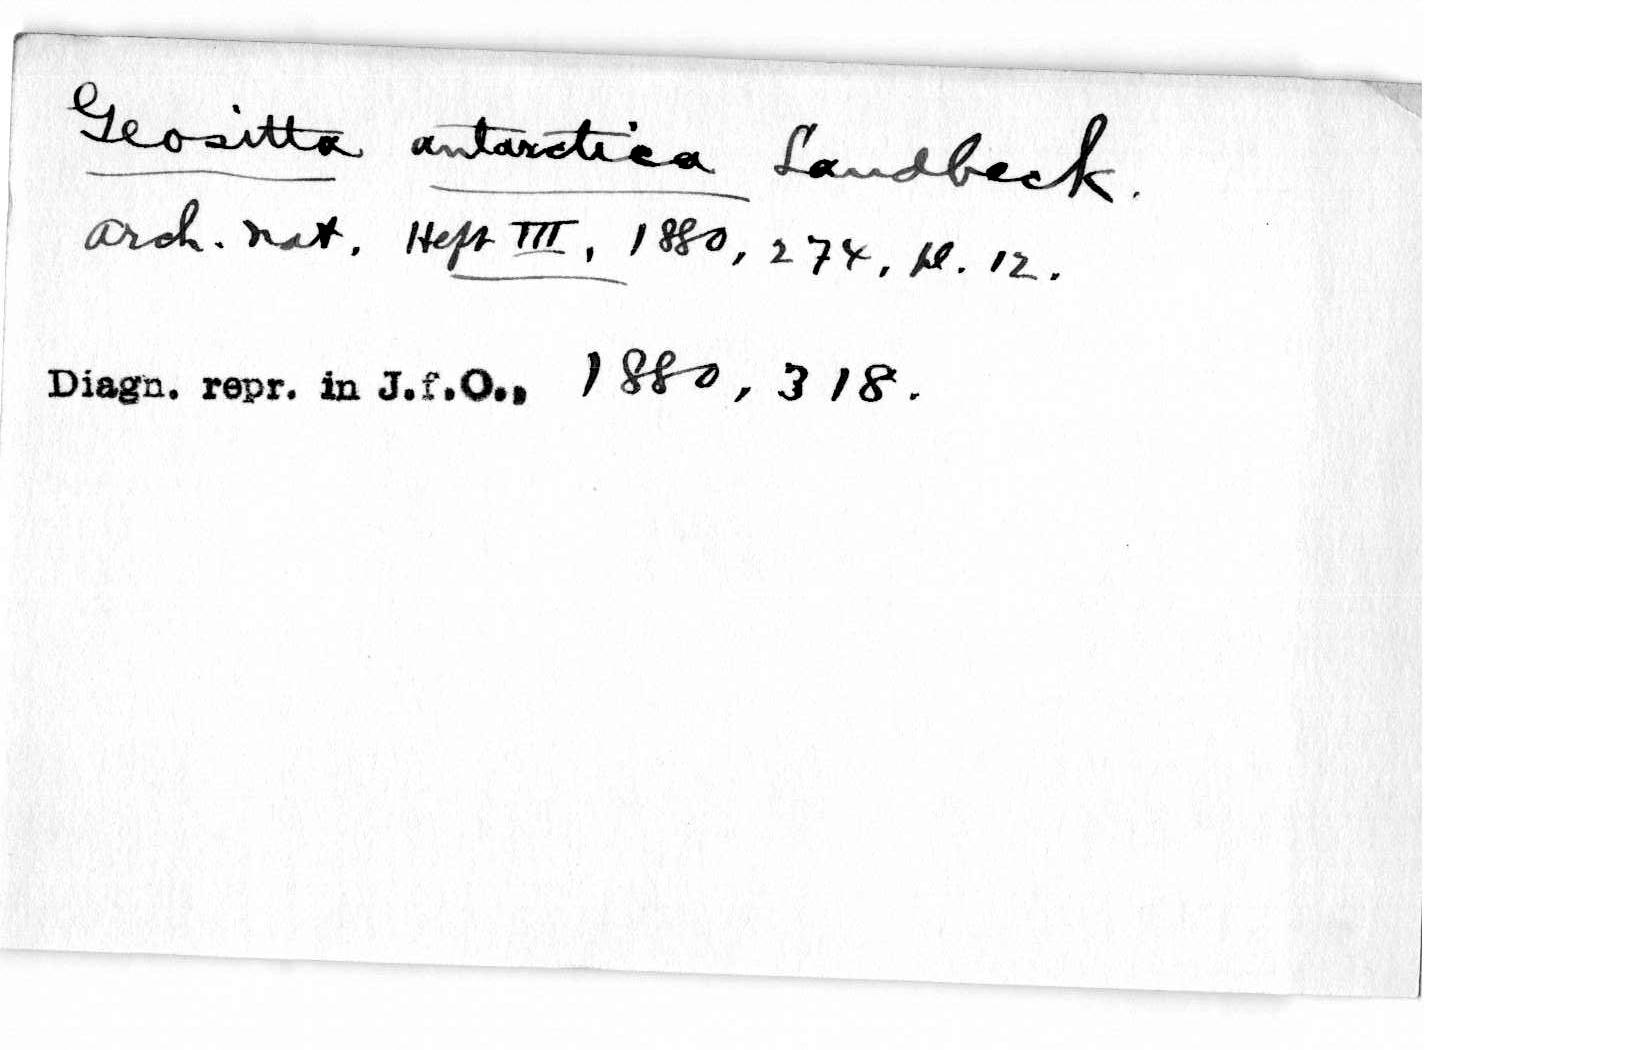 Geositta antarctica Landbeck.
Arch. Nat. Heft III, 1880, 274, pl. 12.
Diagn. repr. in J.f.O., 1880, 318.